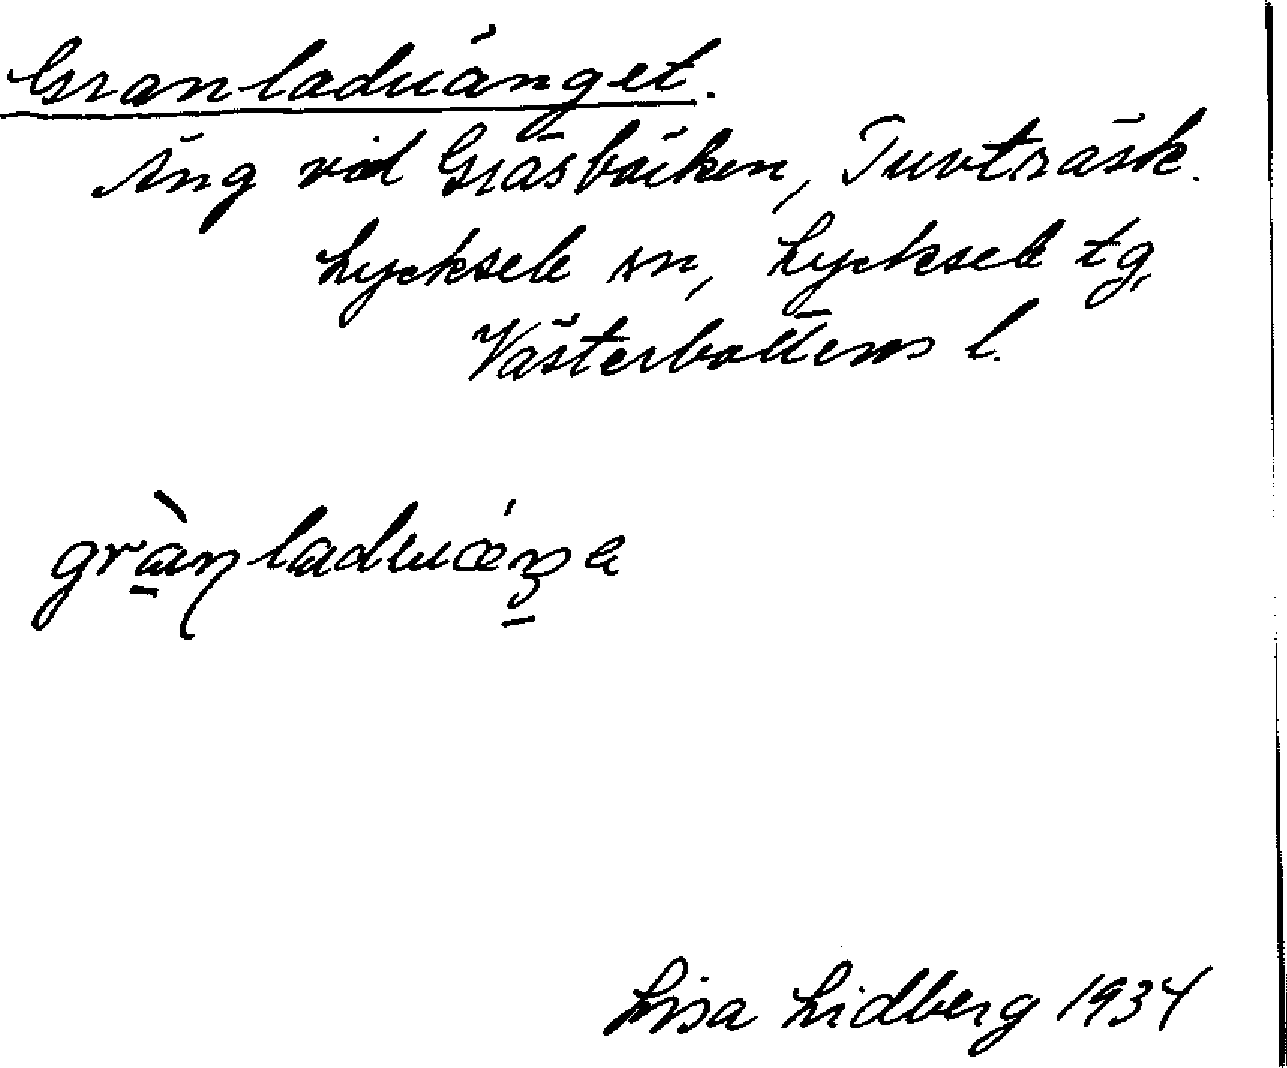 Granladuänget.
Äng vid Gräsbäcken, Tuvträsk.
Lycksele sn, Lycksele tg,
Västerbottens l.
Lisa Lidberg 1934